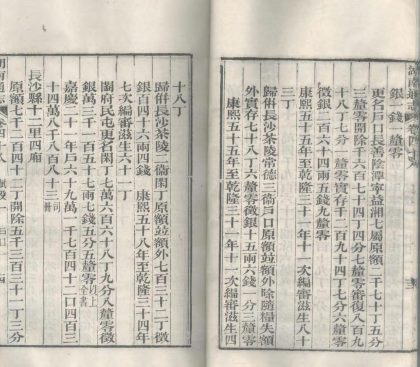 銀一錢一釐零
更名戶口長善陵潭寧益湘七屬原額二千七十丁五分
三釐零開除六百七十四丁四分三釐零審復八百九
十八丁七分一釐零實存二千二百九十四丁七分六釐零
徵銀二百六十四兩五錢九釐零
康熙五十五年至乾隆三十一年十一次編審滋生八十
三丁
歸併長沙茶陵常德三衞戶口原額並額外除隨糧失額
外實存七十八丁六釐零徵銀一十五兩六錢一分零
康熙五十五年至乾隆三十一年十一次編審滋生四
十八丁
歸併長沙茶陵二衞閒丁原額並額外七百三十二丁徵
銀百四十六兩四錢 康熙五十八年至乾隆三十四年
七次編審滋生六十一丁
闔府民屯更名閒丁七萬六百六十八丁九分八釐零徵
銀萬三千一百五十七兩七錢五分五釐零以上全書
嘉慶二十一年戶六十九萬一千七百四十二口四百三
十四萬八千八百八十三司冊
長沙縣十二里四廂
原額七千四百二十二丁開除五千三百三十一丁三分